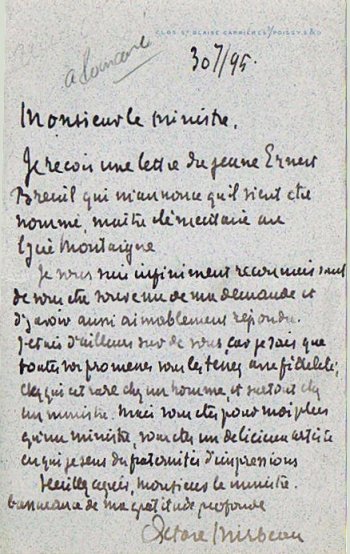 CLOS ST BLAISE CARRIÈRES / POISSY S & O
30 7/95.
Monsieur le ministre,
Je reçois une lettre du jeune Ernest
Breuil qui m'annonce qu'il vient d'être
nommé, maître élémentaire au
lycée Montaigne
Je vous suis infiniment reconnaissant
de vous être souvenu de ma demande et
d'y avoir aussi aimablement répondu.
J'étais d'ailleurs sûr de vous, car je sais que
toutes vos promesses vous les tenez avec fidélité,
ce qui est rare chez un homme, et surtout chez
un ministre. Mais vous êtes pour moi plus
qu'un ministre, vous êtes un délicieux artiste
en qui je sens des fraternités d'impressions
Veuillez agréer, monsieur le ministre.
l'assurance de ma gratitude profonde
Octave Mirbeau